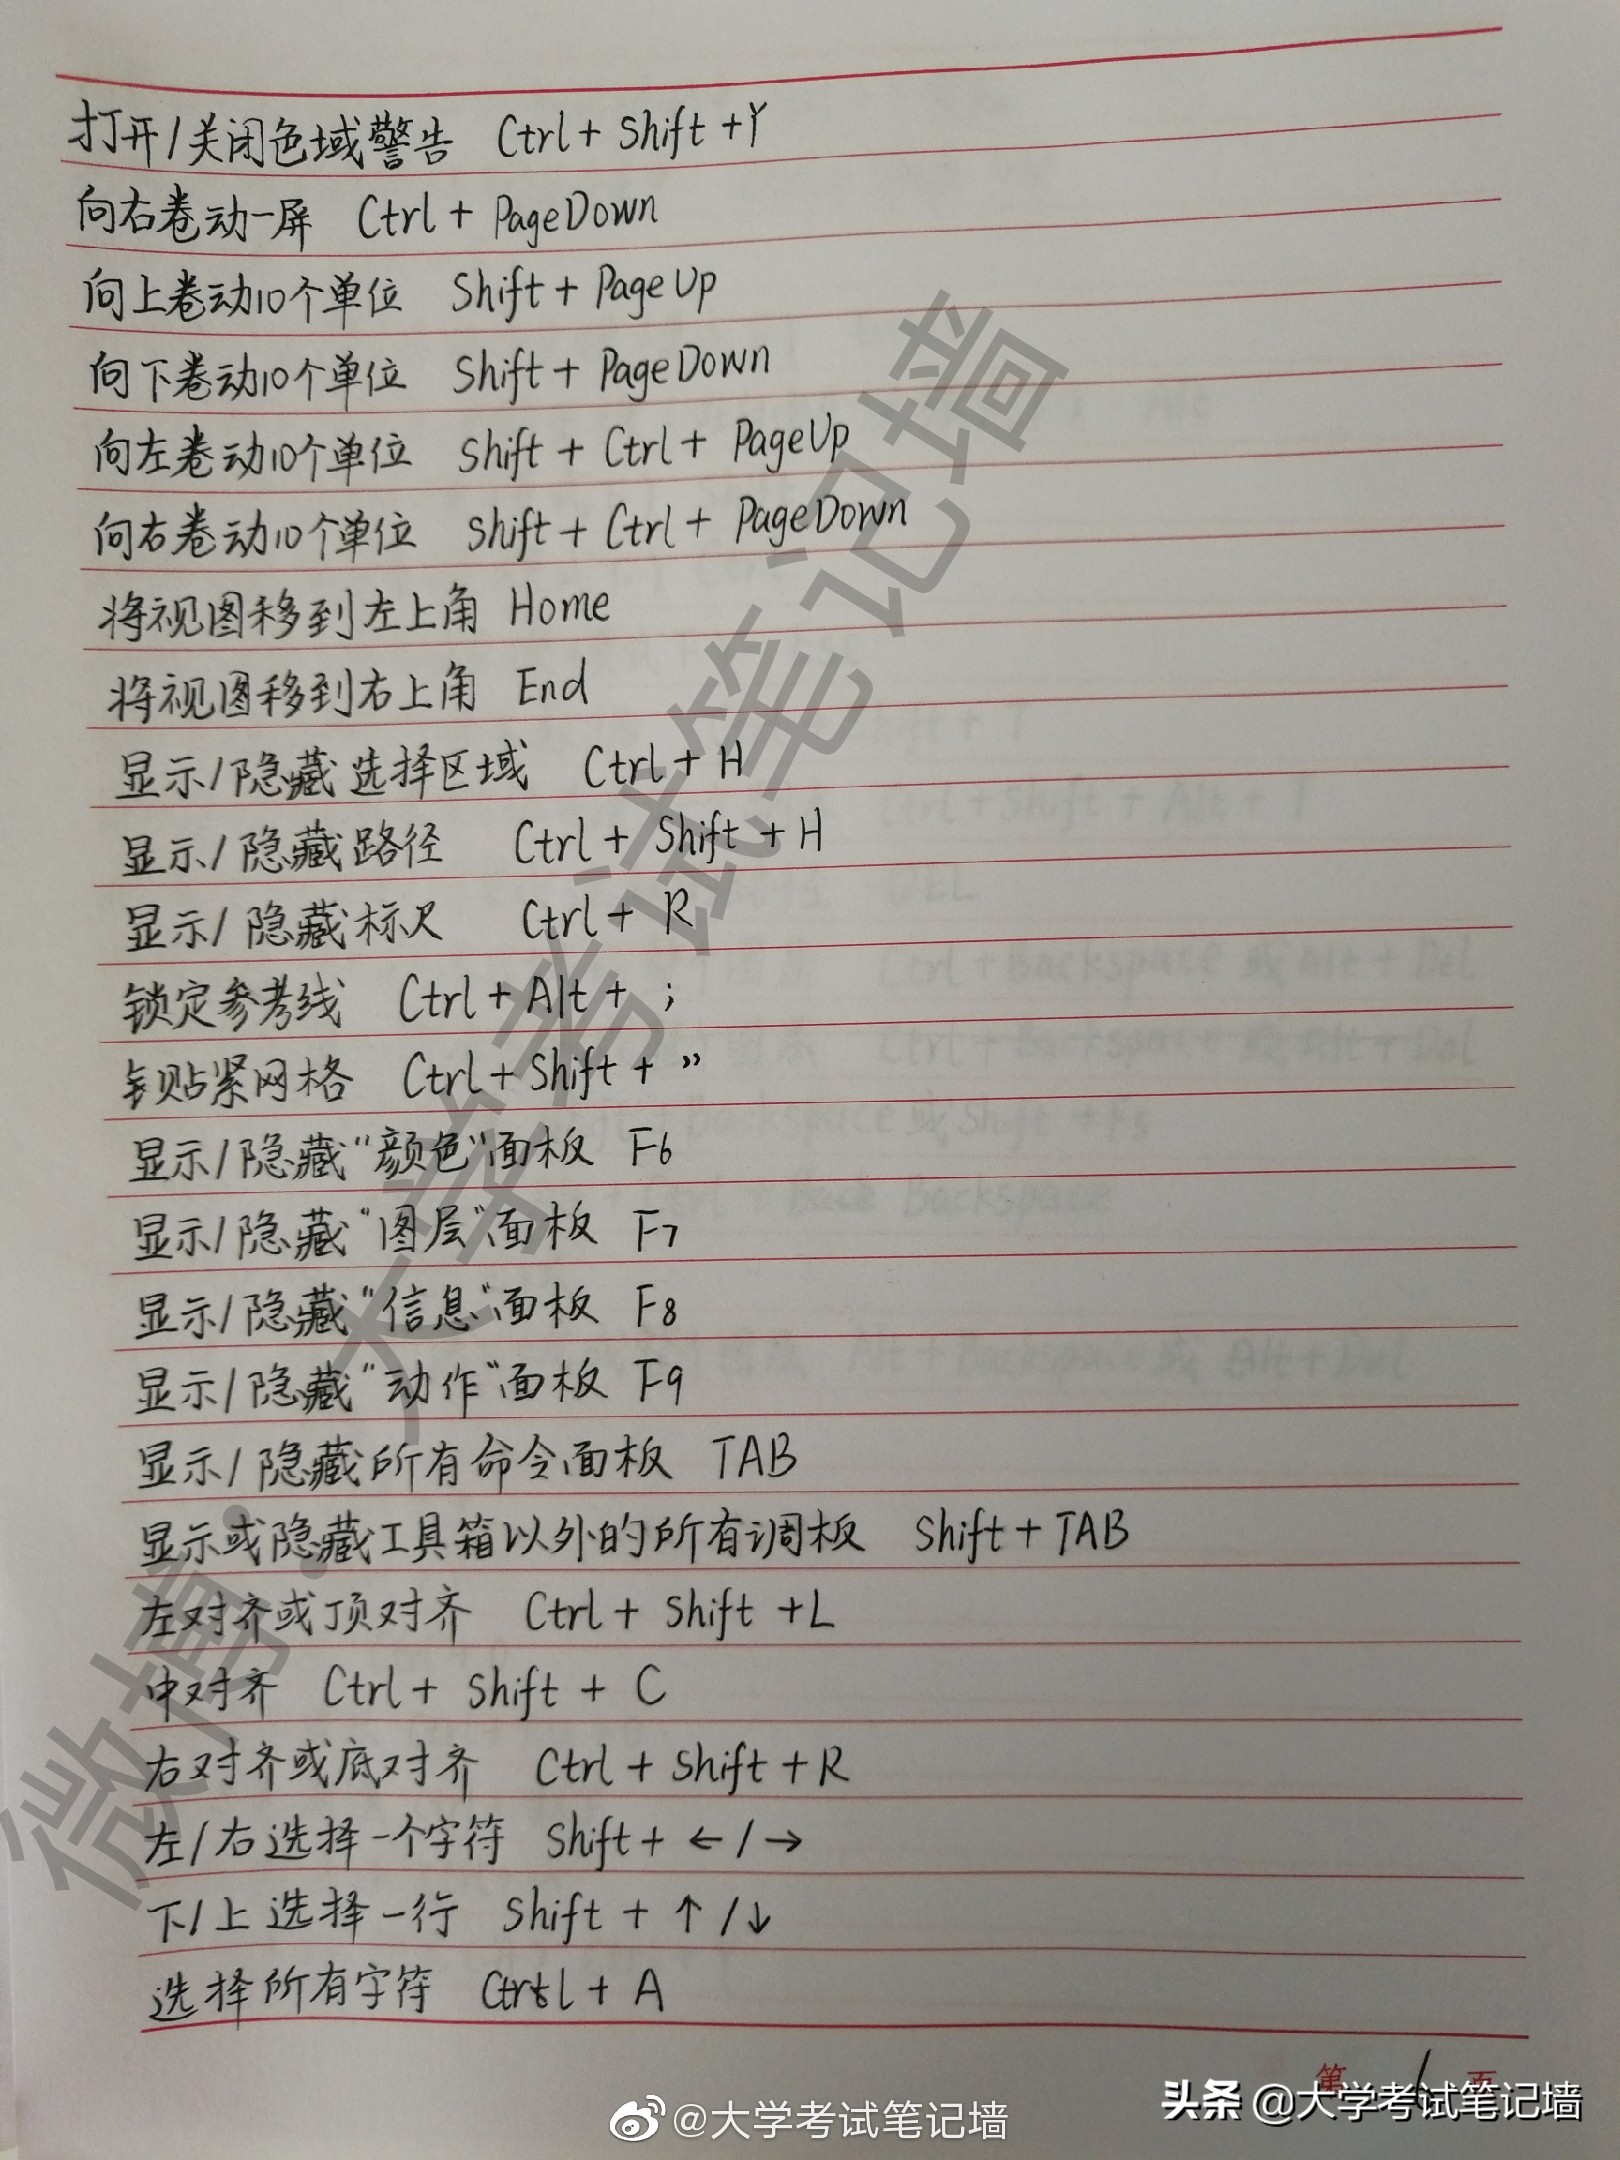 打开/关闭色域警告 Ctrl + Shift + Y
向右卷动一屏 Ctrl + PageDown
向上卷动10个单位 Shift + PageUp
向下卷动10个单位 Shift + PageDown
向左卷动10个单位 Shift + Ctrl + PageUp
向右卷动10个单位 Shift + Ctrl + PageDown
将视图移到左上角 Home
将视图移到右上角 End
显示/隐藏选择区域 Ctrl + H
显示/隐藏路径 Ctrl + Shift + H
显示/隐藏标尺 Ctrl + R
锁定参考线 Ctrl + Alt + ;
贴紧网格 Ctrl + Shift + ”
显示/隐藏“颜色”面板 F6
显示/隐藏“图层”面板 F7
显示/隐藏“信息”面板 F8
显示/隐藏“动作”面板 F9
显示/隐藏所有命令面板 TAB
显示或隐藏工具箱以外的所有调板 Shift + TAB
左对齐或顶对齐 Ctrl + Shift + L
中对齐 Ctrl + Shift + C
右对齐或底对齐 Ctrl + Shift + R
左/右选择一个字符 Shift + ← / →
下/上选择一行 Shift + ↑ / ↓
选择所有字符 Ctrl + A
微博:大学考试笔记墙
第 6 页
@大学考试笔记墙
头条 @大学考试笔记墙